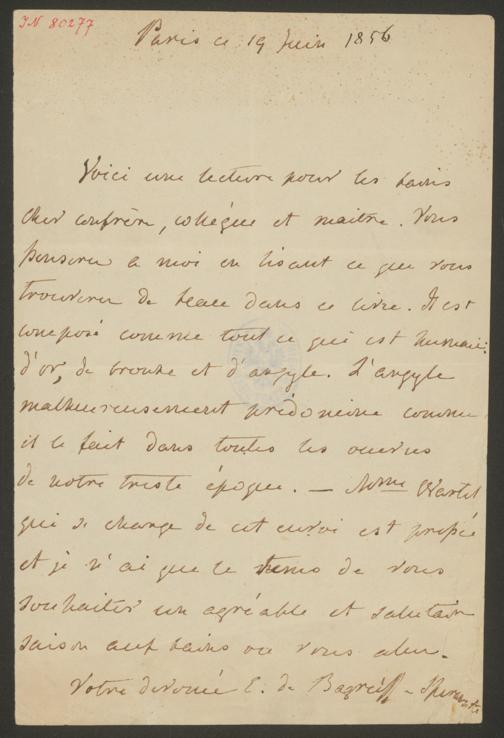 IN 80277
Paris ce 19 Juin 1856
Voici une lecture pour les bains
cher confrère, collègue et maitre. Vous
penserez a moi en lisant ce que vous
trouverez de beau dans ce livre. Il est
composé comme tout ce qui est humain:
d'or, de bronze et d'argyle. L'argyle
malheureusement prédomine comme
il le fait dans toutes les œuvres
de notre triste époque. — Mme Wartel
qui se charge de cet envoi est pressée
et je n'ai que le tems de vous
souhaiter un agréable et salutaire
saison aux bains ou vous allez.
Votre devouée E. de Bagréeff-Speransky